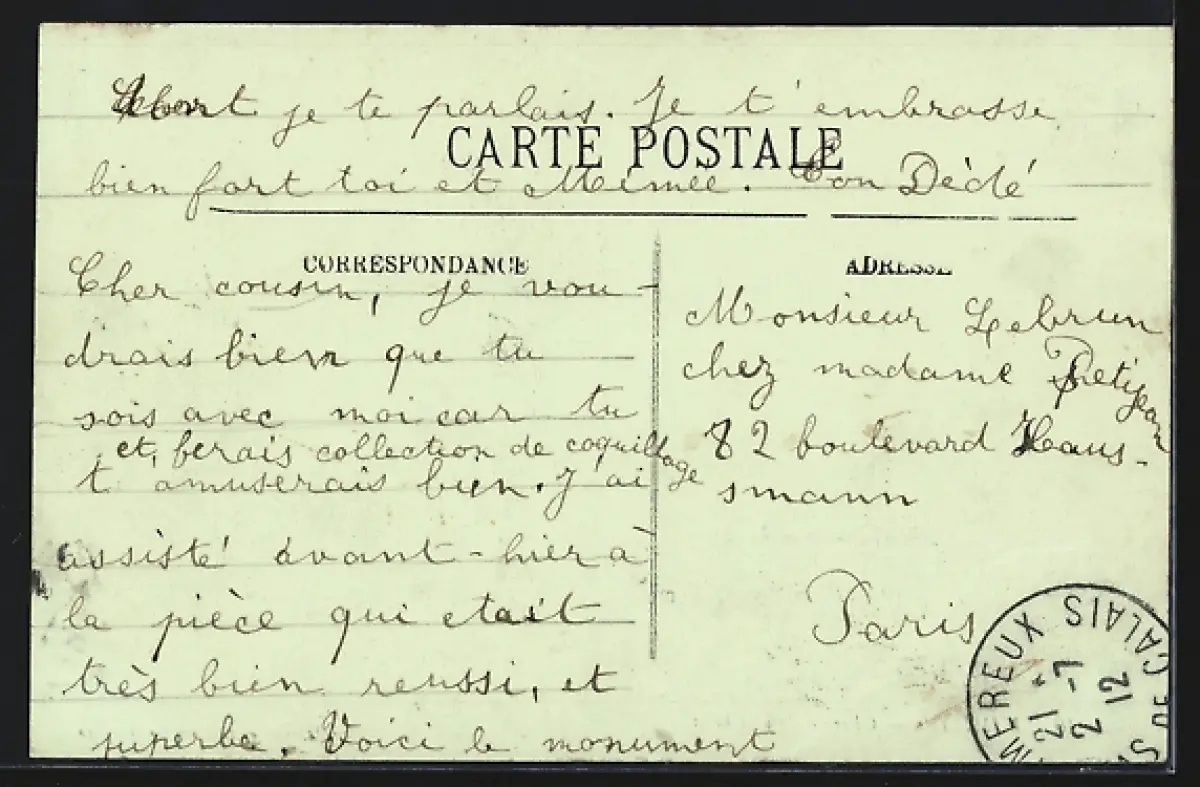 dont je te parlais. Je t'embrasse
CARTE POSTALE
bien fort toi et Mémée. Ton Dèdé
CORRESPONDANCE
Cher cousin, je vou-
drais bien que tu
sois avec moi car tu
et, ferais collection de coquillage
t'amuserais bien. J'ai
assisté avant-hier à
la pièce qui etait
très bien reussi, et
superbe. Voici le monument
ADRESSE
Monsieur Lebrun
chez madame Petijean
82 boulevard Haus-
smann
Paris
MEREUX
S DE CALAIS
21
2 -7
12